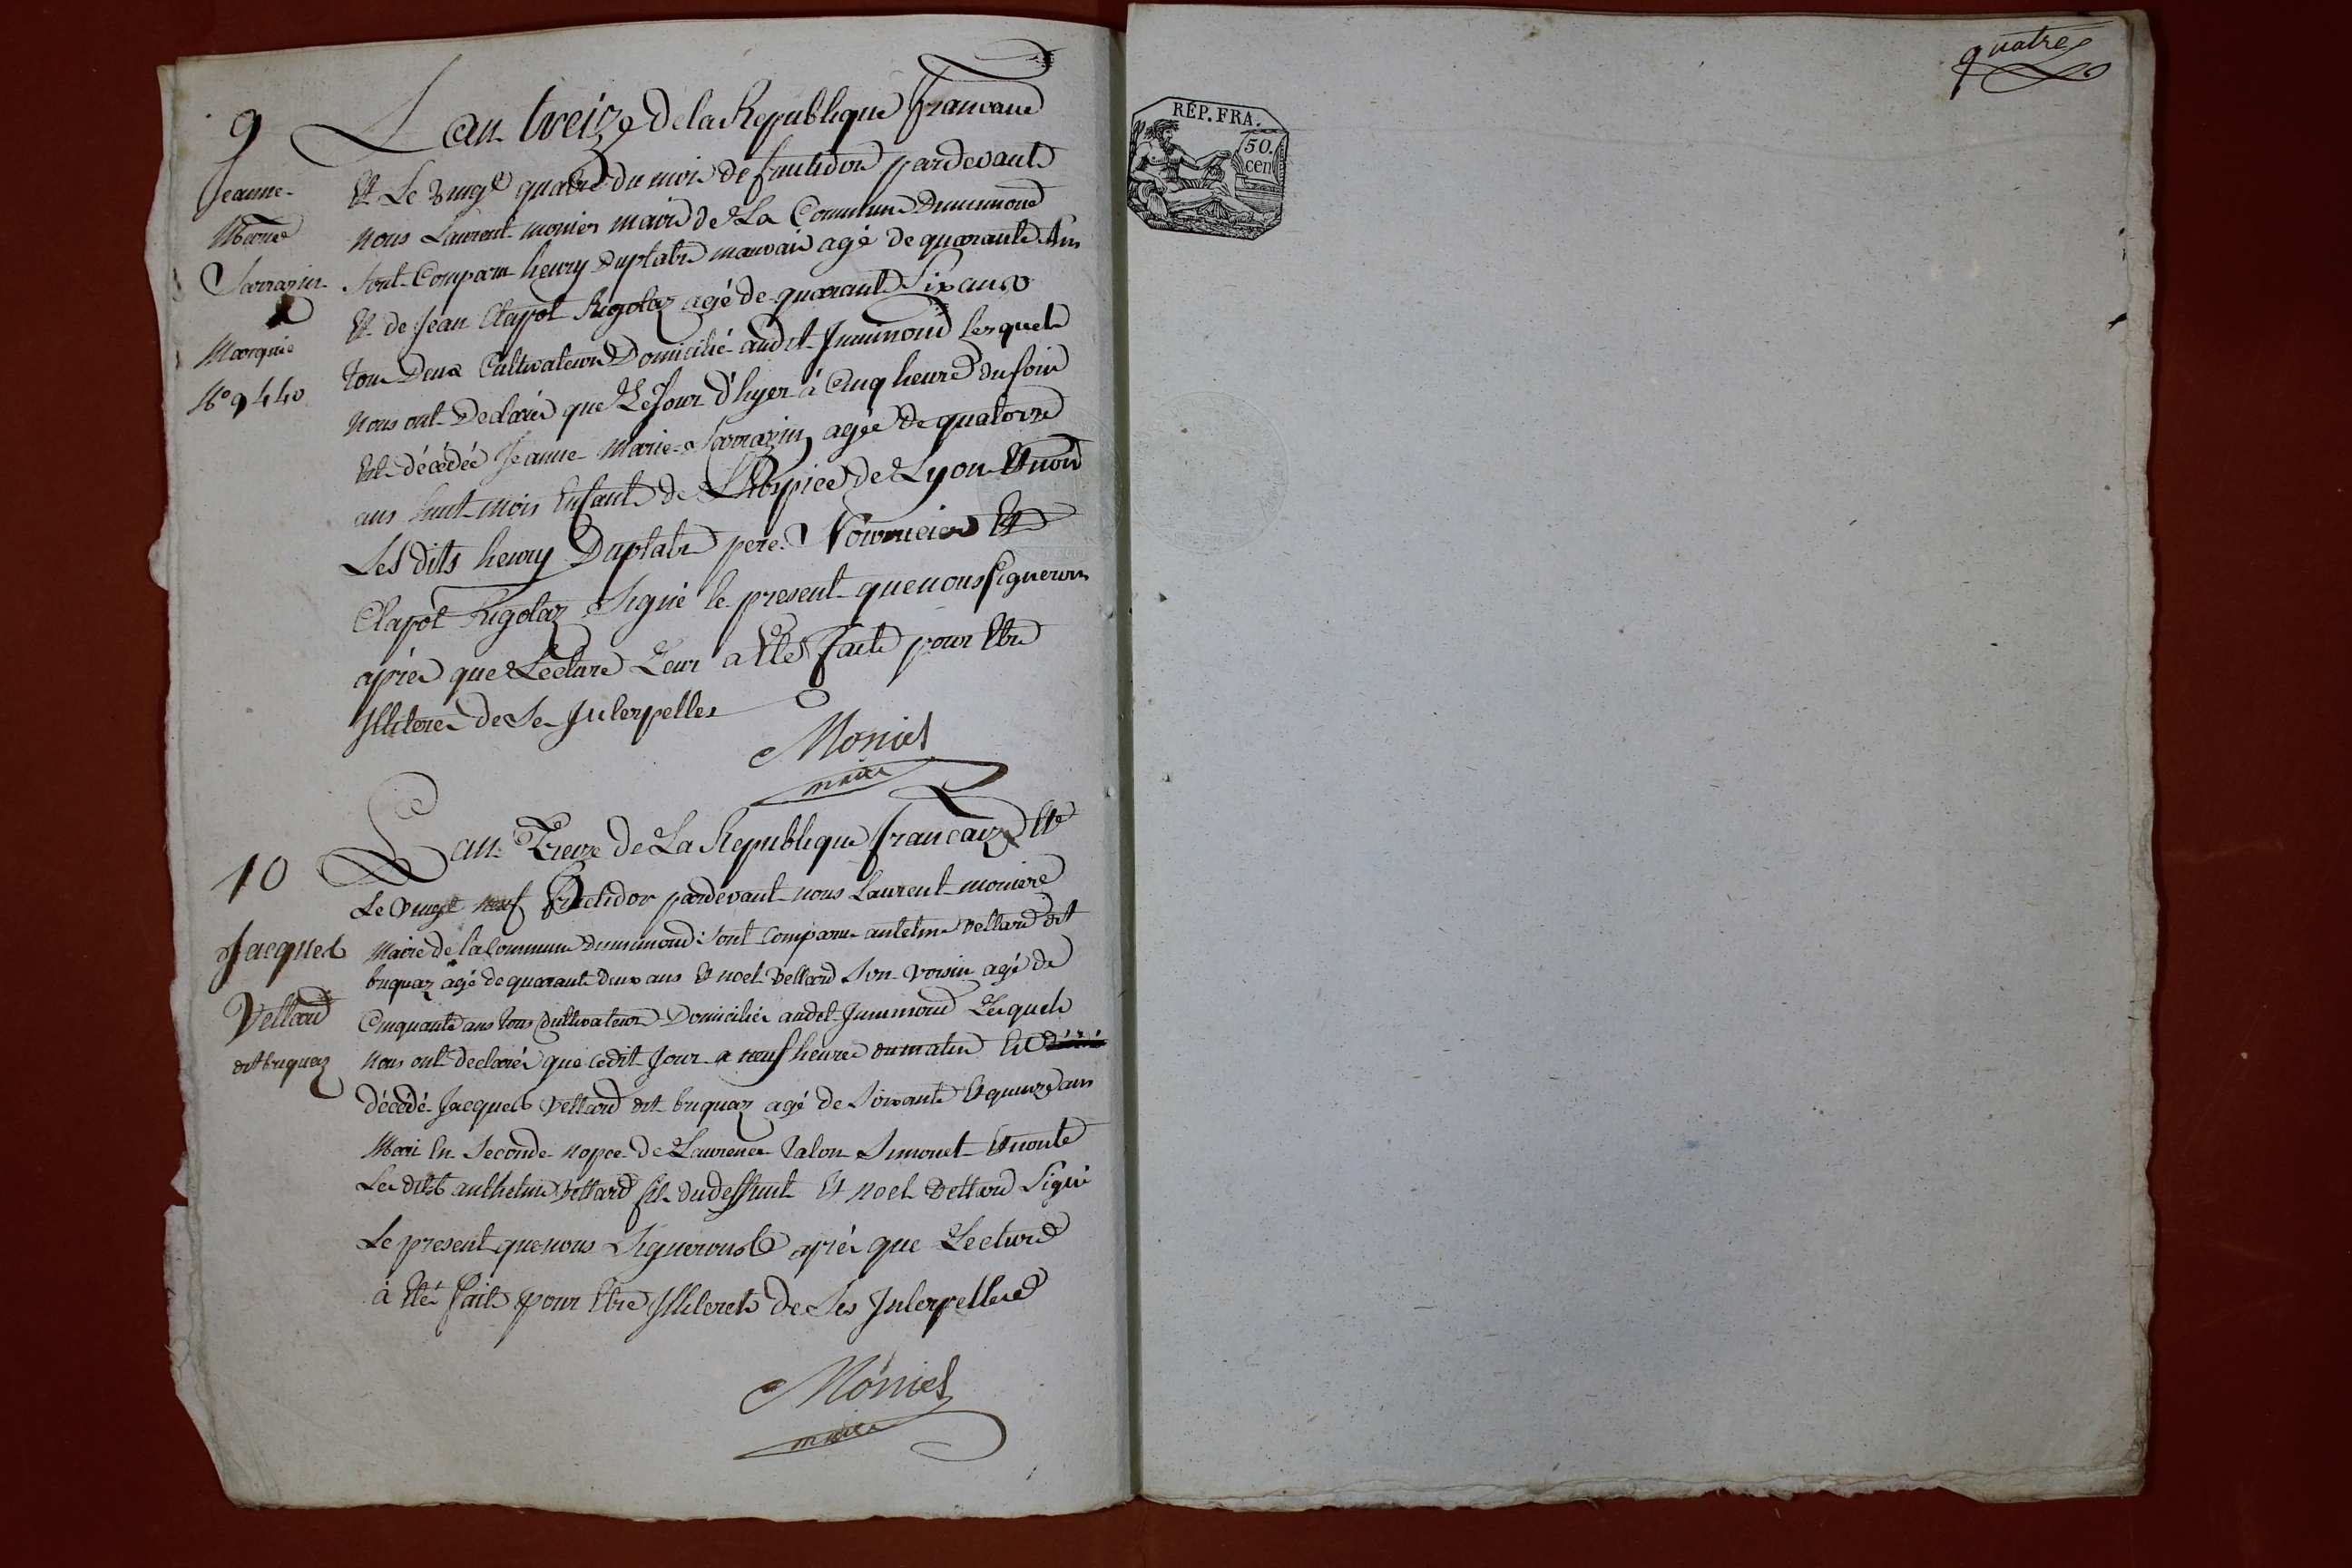 9
Jeanne-
Marie
Sarrazin
Marquée
N° 9440
L'an treize de la Republique francaise
Et Le vingt quatre du mois de fructidor pardevant
nous Laurent monier maire de La Commune Dinnimond
sont Comparu henry Duplatre mauvais agé de quarante Ans
Et de Jean Clapot Rigolaz agé de quarante Six ans
tous Deux Cultivateurs Domicilié audit Innimond lesquels
nous ont Declarés que Le Jour d'hyer à Cinq heure du soir
Est décédée Jeanne Marie Sarrazin agée de quatorze
ans huit mois Enfant de L'hospice de Lyon Et non
Les dits henry Duplatre pere Nourricier Et
Clapot Rigolaz Signé le present que nous Signerons
après que Lecture Leur a Eté faite pour Etre
Illiterés de Se Interpellés
Monier
maire
10
Jacques
Vettard
dit briquaz
L'an Treize de La Republique francaize Et
Le vingt neuf fructidor pardevant nous Laurent moniere
Maire de la Commune Dinnimond : sont Comparu antelme vettard dit
briquaz agé de quarante Deux ans Et noel vettard Son voisin agé de
Cinquante ans tous Cultivateurs Domiciliés audit Innimond Lesquels
nous ont declarés que cedit Jour a neuf heures du matin Est
décédé Jacques Vettard dit briquaz agé de Soixante Et quinze ans
Mari En Seconde nopce de Laurence Talon Simonet Et nonte
Les dits anthelme Vettard fils du deffunt Et noel Vettard Signé
Le present que nous Signerons après que Lecture
à Eté faite pour Etre Illiterets de Ses Interpellés
Monier
maire
quatre
RÉP. FRA.
50.
cen